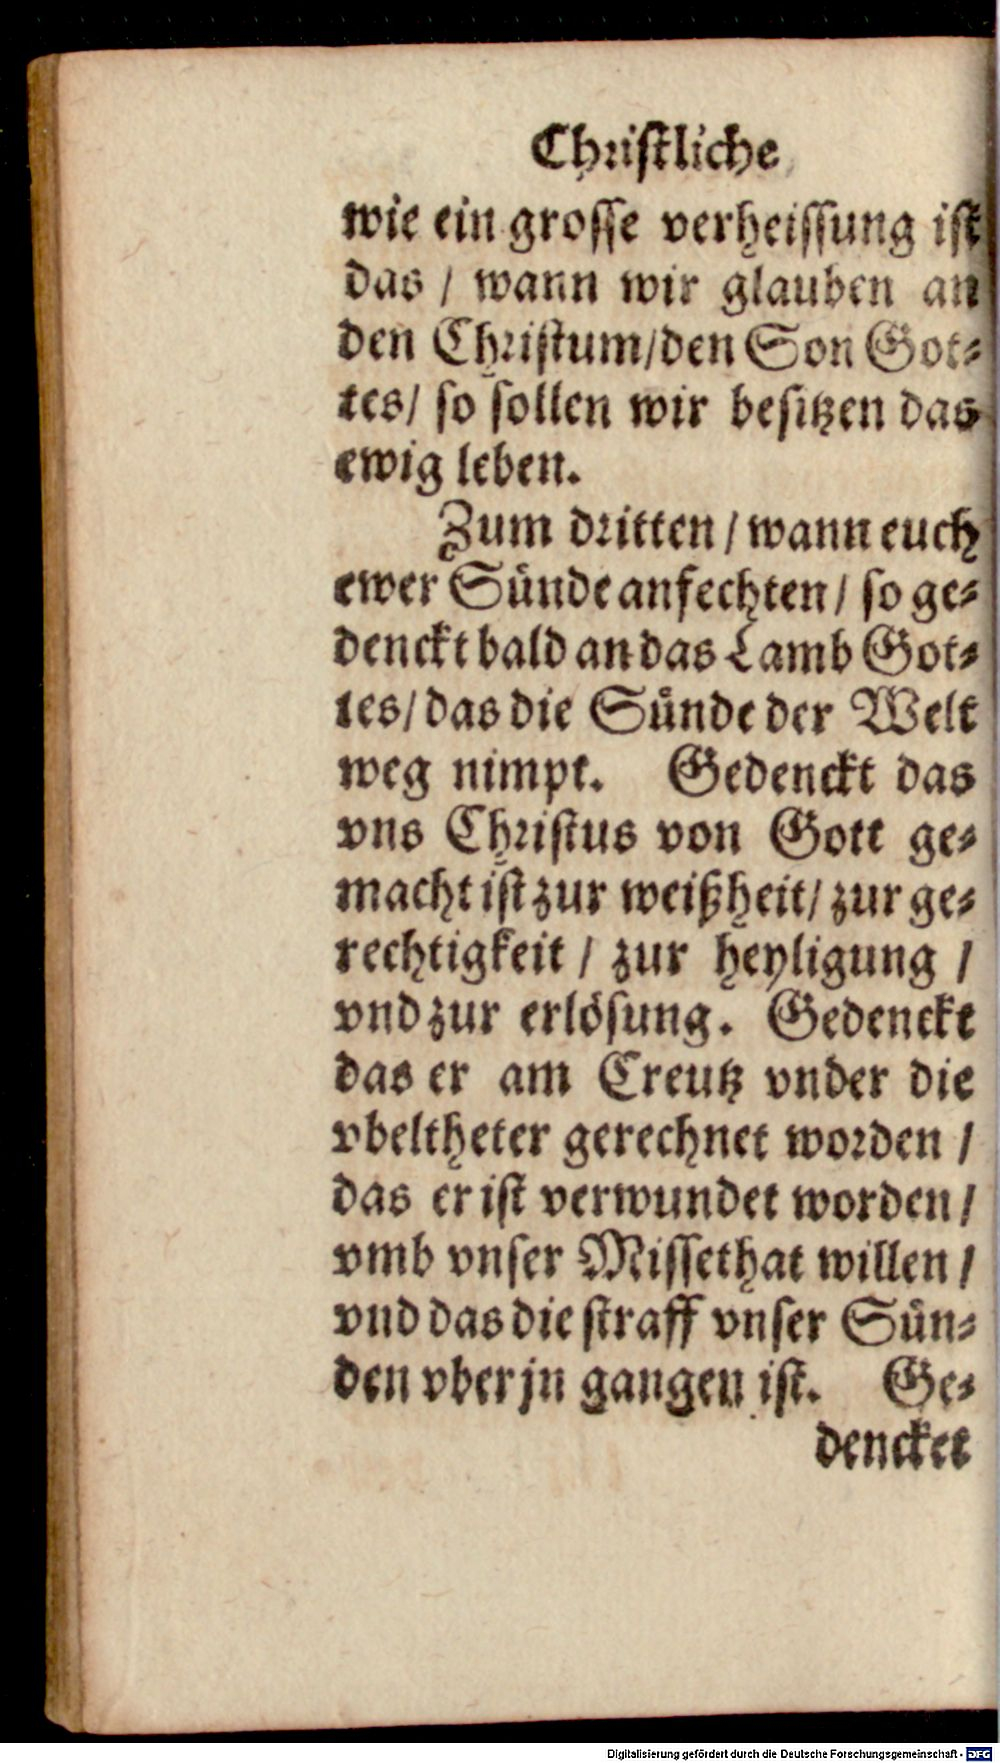 Christliche
wie ein grosse verheissung ist
das / wann wir glauben an
den Christum/den Son Got-
tes/ so sollen wir besitzen das
ewig leben.
Zum dritten / wann euch
ewer Sünde anfechten / so ge-
denckt bald an das Lamb Got-
tes/das die Sünde der Welt
weg nimpt. Gedenckt das
vns Christus von Gott ge-
macht ist zur weißheit/ zur ge-
rechtigkeit / zur heyligung /
vnd zur erlösung. Gedenckt
das er am Creutz vnder die
vbeltheter gerechnet worden /
das er ist verwundet worden /
vmb vnser Missethat willen /
vnd das die straff vnser Sün-
den vber jn gangen ist. Ge-
dencket
Digitalisierung gefördert durch die Deutsche Forschungsgemeinschaft - DFG